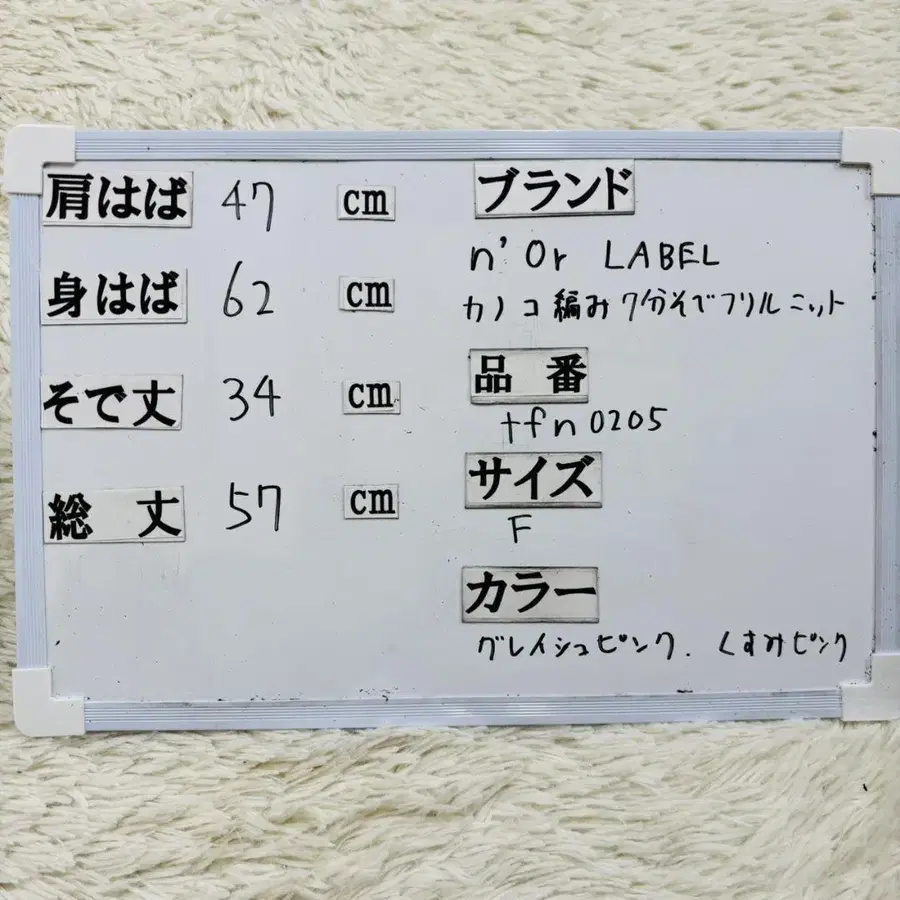 肩はば 47 cm
身はば 62 cm
そで丈 34 cm
総丈 57 cm
ブランド
n'Or LABEL
カノコ編み7分そでフリルニット
品番
tfn0205
サイズ
F
カラー
グレイシュピンク. くすみピンク